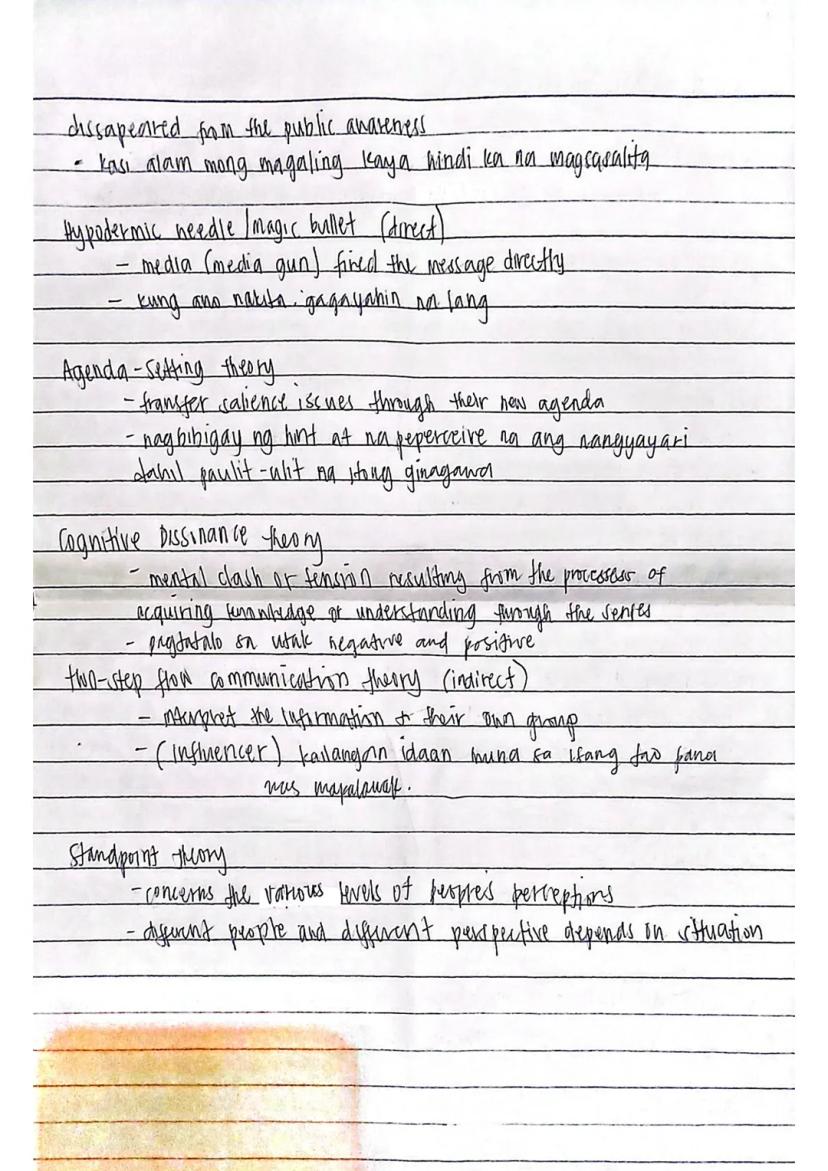 dissapeared from the public awareness
- kasi alam mong magaling kaya hindi ka na magsasalita
Hypodermic needle/magic bullet (direct)
- media (media gun) fired the message directly
- kung ano nakita, gagayahin na lang
Agenda-setting theory
- transfer salience issues through their new agenda
- nagbibigay ng hint at na peperceive na ang nangyayari
dahil paulit-ulit na itong ginagawa
Cognitive Dissinance theory
- mental clash or tension resulting from the processes of
acquiring knowledge or understanding through the senses
- pagtatalo sa utak negative and positive
two-step flow communication theory (indirect)
- interpret the information to their own group
- (influencer) kailangan idaan muna sa isang tao para
mas mapalawak.
Standpoint theory
- concerns the various levels of people's perceptions
- different people and different perspective depends on situation